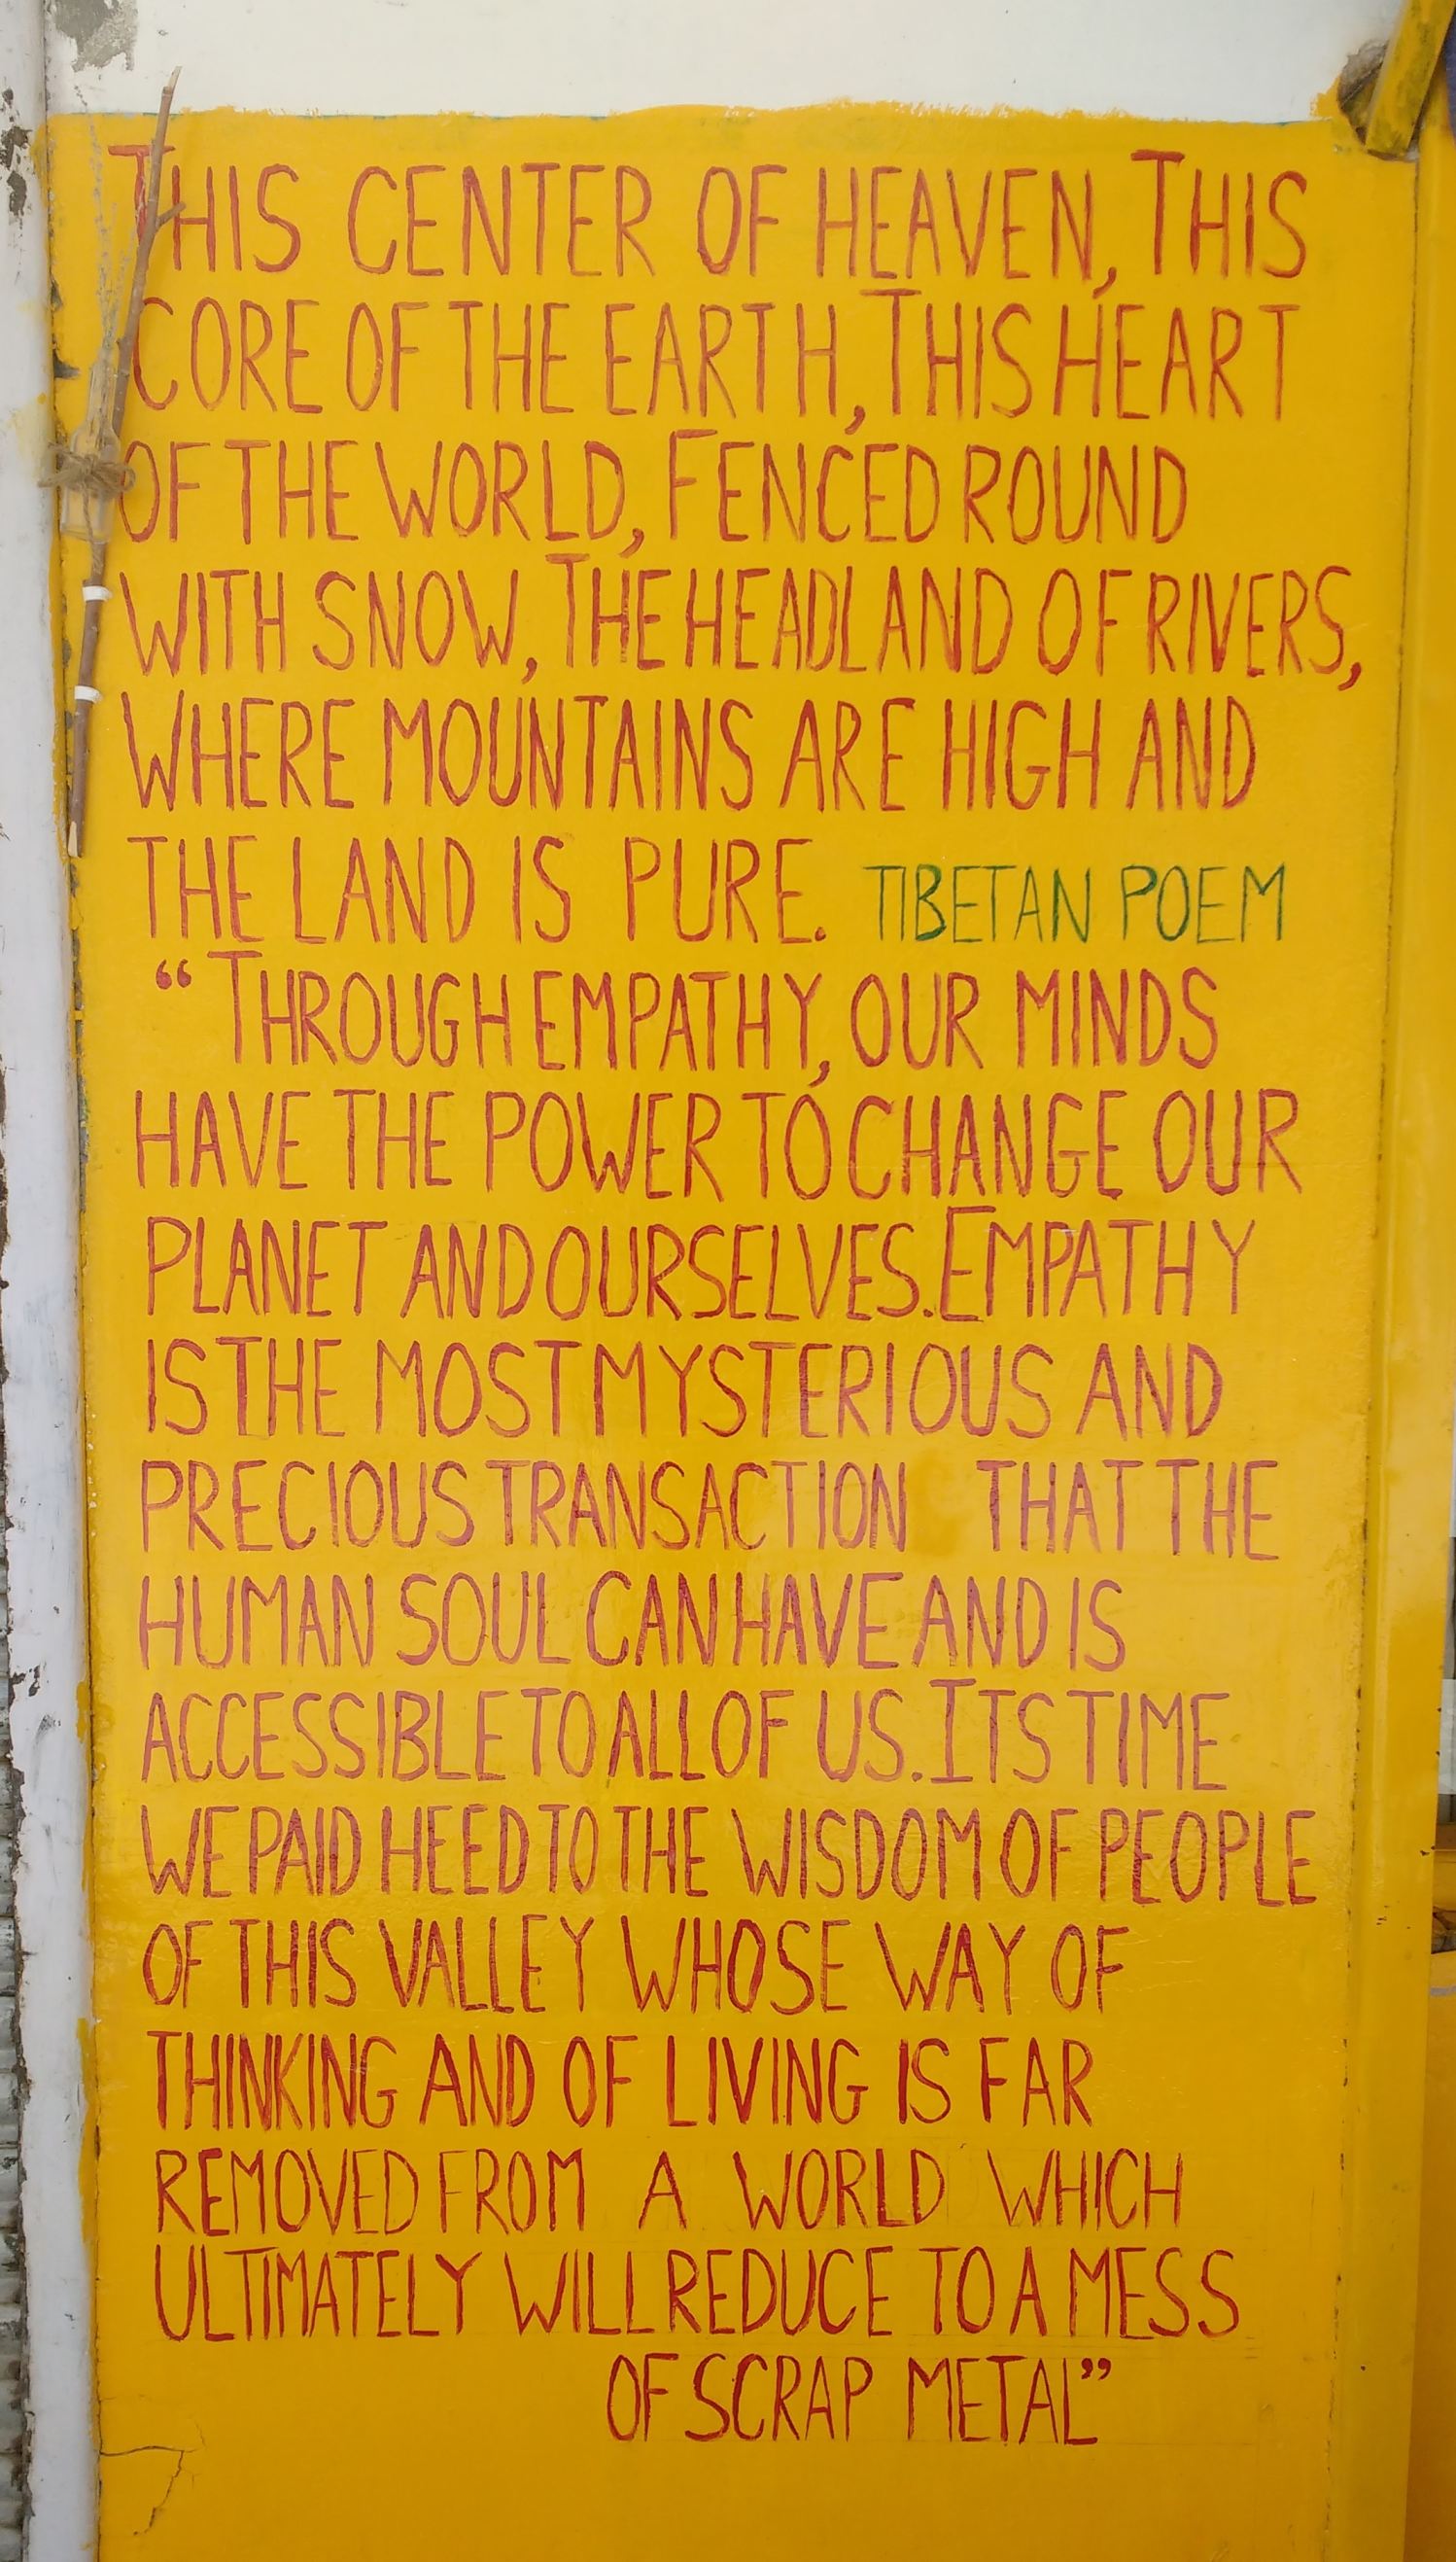 THIS CENTER OF HEAVEN, THIS
CORE OF THE EARTH, THIS HEART
OF THE WORLD, FENCED ROUND
WITH SNOW, THE HEADLAND OF RIVERS,
WHERE MOUNTAINS ARE HIGH AND
THE LAND IS PURE. TIBETAN POEM
“THROUGH EMPATHY, OUR MINDS
HAVE THE POWER TO CHANGE OUR
PLANET AND OURSELVES. EMPATHY
IS THE MOST MYSTERIOUS AND
PRECIOUS TRANSACTION THAT THE
HUMAN SOUL CAN HAVE AND IS
ACCESSIBLE TO ALL OF US. ITS TIME
WE PAID HEED TO THE WISDOM OF PEOPLE
OF THIS VALLEY WHOSE WAY OF
THINKING AND OF LIVING IS FAR
REMOVED FROM A WORLD WHICH
ULTIMATELY WILL REDUCE TO A MESS
OF SCRAP METAL”